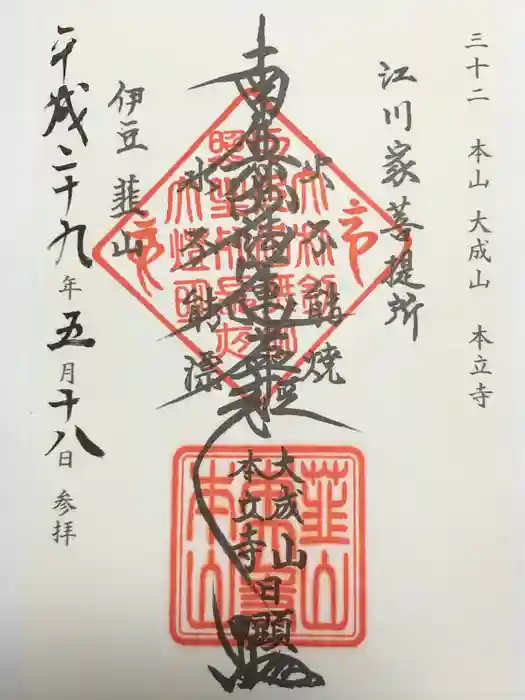 三十二 本山 大成山 本立寺
江川家菩提所
火不能焼
南無妙法蓮華経
水不能漂
大成山
本立寺 日顕
伊豆 韮山
平成二十九年五月十八日 参拝
韮山
本山